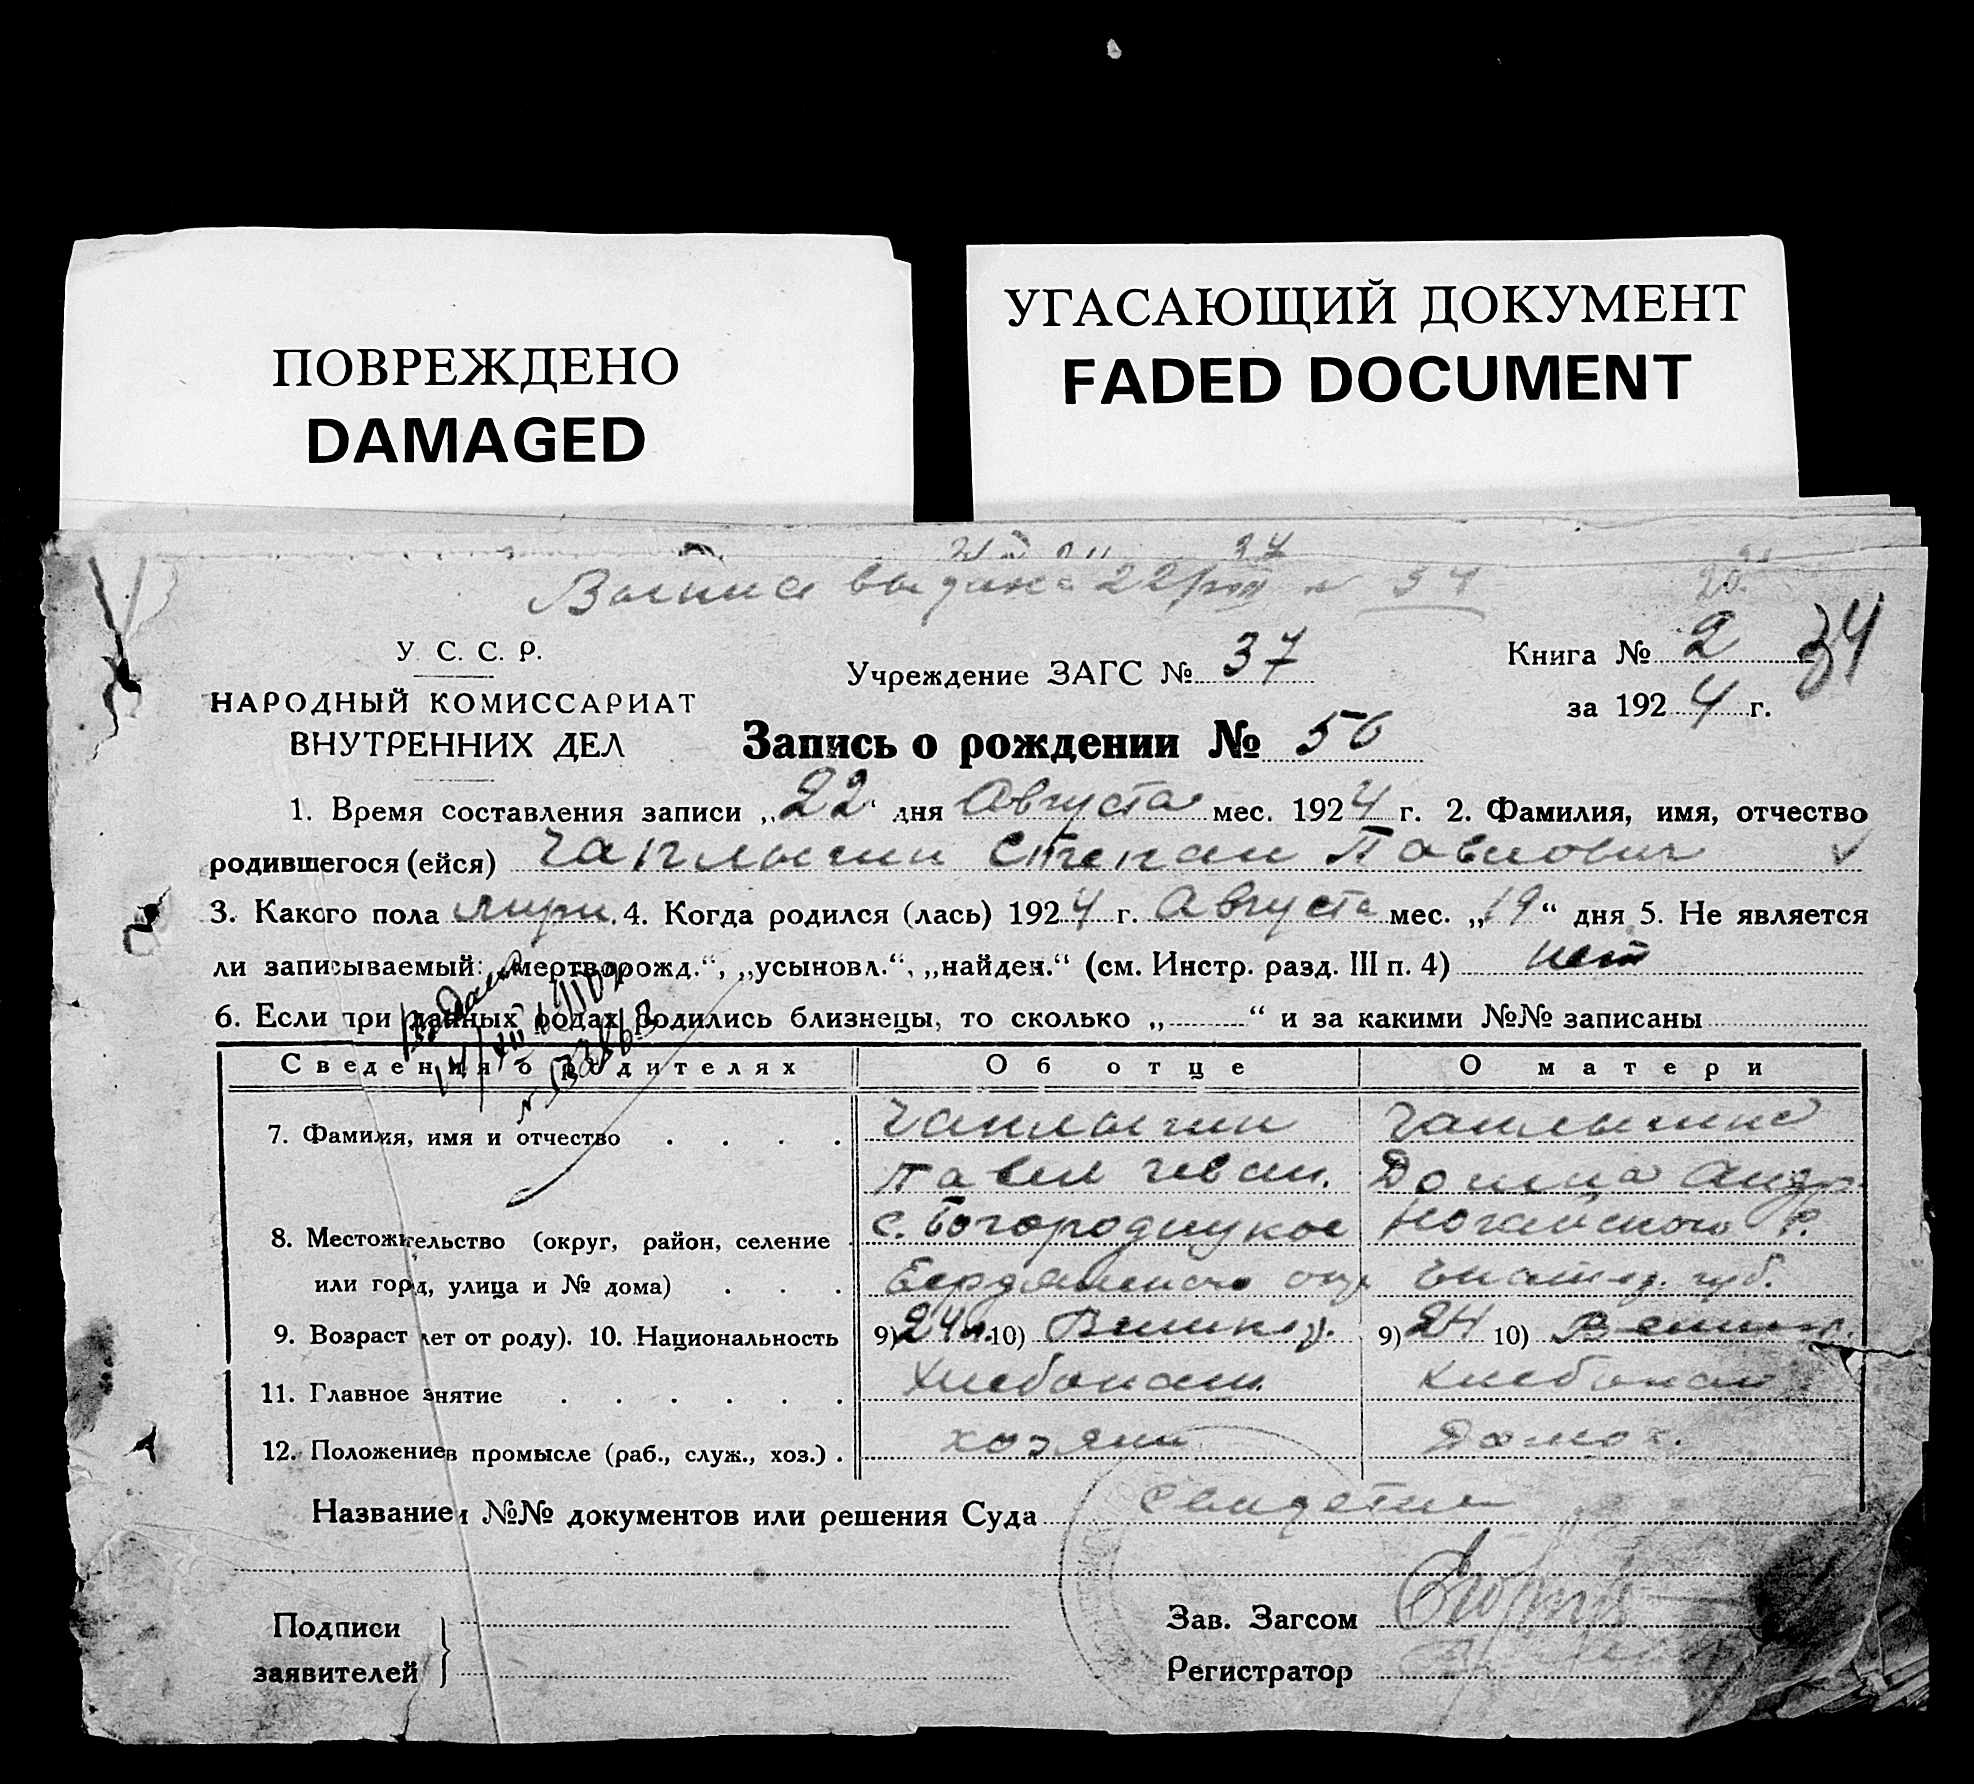 ПОВРЕЖДЕНО
DAMAGED
УГАСАЮЩИЙ ДОКУМЕНТ
FADED DOCUMENT
Выпись выдана 22/VIII № 54
34
У. С. С. Р.
НАРОДНЫЙ КОМИССАРИАТ
ВНУТРЕННИХ ДЕЛ
Учреждение ЗАГС № 37
Книга № 2
за 1924 г.
Запись о рождении № 56
1. Время составления записи „22“ дня Августа мес. 1924 г. 2. Фамилия, имя, отчество
родившегося (ейся) Чаплыгин Степан Павлович
3. Какого пола 4. Когда родился (лась) 1924 г. Августа мес. „19“ дня 5. Не является
ли записываемый: „мертворожд.“, „усыновл.“, „найден.“ (см. Инстр. разд. III п. 4) нет
6. Если при данных родах родились близнецы, то сколько „ “ и за какими №№ записаны
Сведения о родителях Об отце О матери
7. Фамилия, имя и отчество Чаплыгин Чаплыгина
Павел Иван. Домна Андр.
8. Местожительство (округ, район, селение с. Богородицкое Ногайского р.
или гор., улица и № дома) Бердянского окр. Екатер. губ.
9. Возраст лет от роду). 10. Национальность 9) 24 л. 10) Великор. 9) 24 10) Великор.
11. Главное занятие Хлебопаш. Хлебопаш
12. Положение в промысле (раб., служ., хоз.) хозяин Домох.
Название и №№ документов или решения Суда
Подписи
заявителей
Зав. Загсом
Регистратор